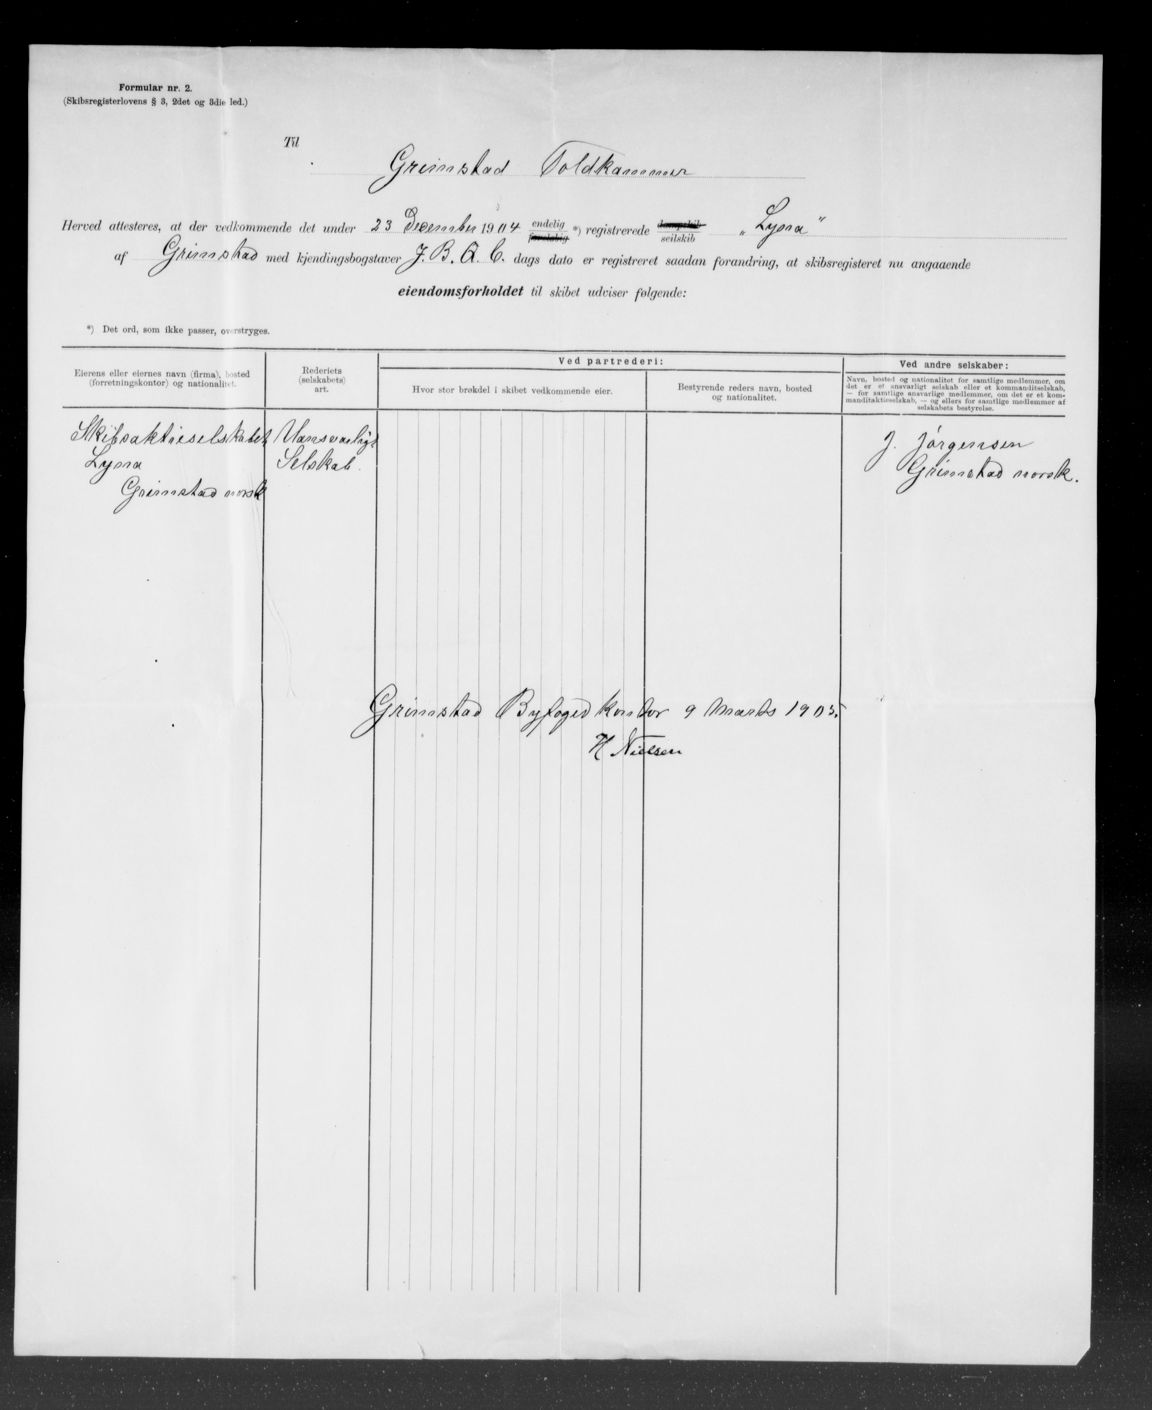 Formular nr. 2.
(Skibsregisterlovens § 3, 2det og 3die led.)
Til
Grimstad Toldkammer
Herved attesteres, at der vedkommende det under 23 December 1904 endelig foreløbig *) registrerede dampskib seilskib „Lyna"
af Grimstad med kjendingsbogstaver J. B. Q. C. dags dato er registreret saadan forandring, at skibsregisteret nu angaaende
eiendomsforholdet til skibet udviser følgende:
*) Det ord, som ikke passer, overstryges.
Eierens eller eiernes navn (firma), bosted
(forretningskontor) og nationalitet.
Rederiets
(selskabets)
art.
Ved partrederi:
Hvor stor brøkdel i skibet vedkommende eier.
Bestyrende reders navn, bosted
og nationalitet.
Ved andre selskaber:
Navn, bosted og nationalitet for samtlige medlemmer, om
det er et ansvarligt selskab eller et kommanditselskab,
— for samtlige ansvarlige medlemmer, om det er et kom-
manditaktieselskab, — og ellers for samtlige medlemmer af
selskabets bestyrelse.
Skibsaktieselskabet
Lyna
Grimstad norsk
Uansvarligt
Selskab.
J. Jørgensen
Grimstad norsk.
Grimstad Byfogedkontor 9 Marts 1905.
H Nielsen